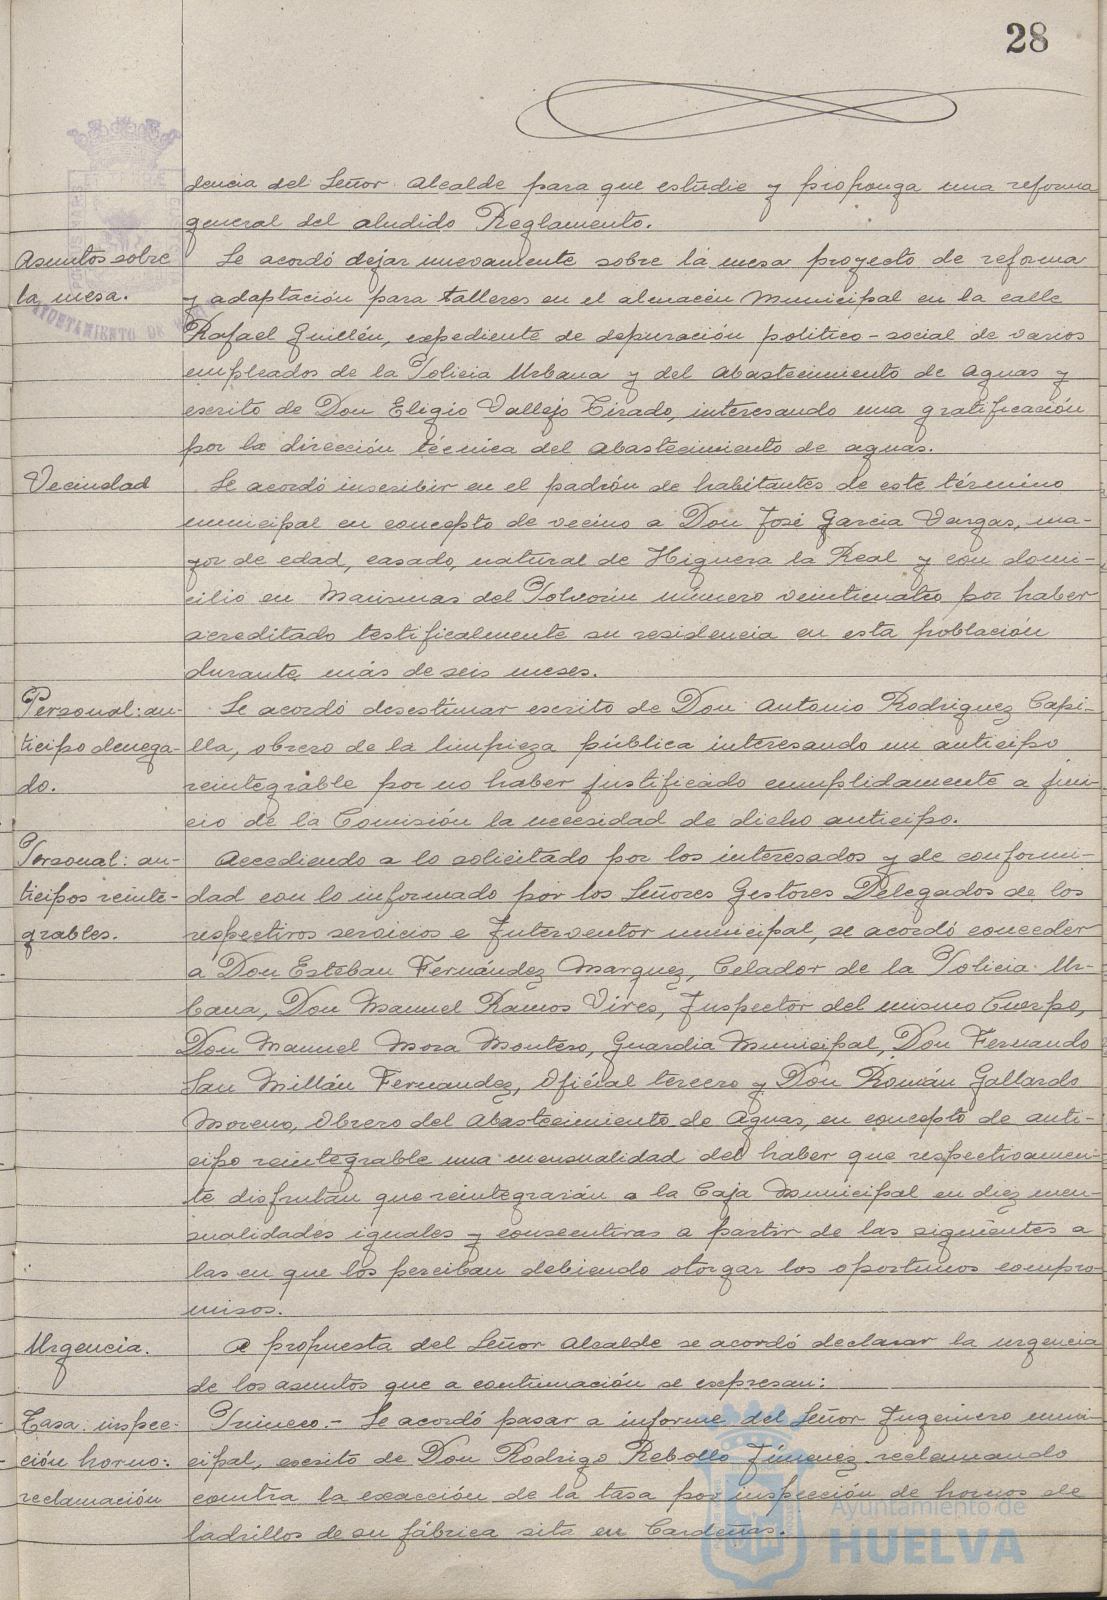 28
dencia del Señor Alcalde para que estudie y proponga una reforma
general del aludido Reglamento.
Asuntos sobre
la mesa.
Se acordó dejar nuevamente sobre la mesa proyecto de reforma
y adaptación para talleres en el almacén Municipal en la calle
Rafael Guillén, expediente de depuración político-social de varios
empleados de la Policía Urbana y del Abastecimiento de Aguas y
escrito de Don Eligio Vallejo Tirado, interesando una gratificación
por la dirección técnica del Abastecimiento de aguas.
Vecindad
Se acordó inscribir en el padrón de habitantes de este término
municipal en concepto de vecino a Don José García Vargas, ma-
yor de edad, casado, natural de Higuera la Real y con domi-
cilio en Marismas del Polvorin número veinticuatro por haber
acreditado testificalmente su residencia en esta población
durante más de seis meses.
Personal: an-
ticipo denega-
do.
Se acordó desestimar escrito de Don Antonio Rodriguez Capi-
lla, obrero de la limpieza pública interesando un anticipo
reintegrable por no haber justificado cumplidamente a jui-
cio de la Comisión la necesidad de dicho anticipo.
Personal: an-
ticipos reinte-
grables.
Accediendo a lo solicitado por los interesados y de conformi-
dad con lo informado por los Señores Gestores Delegados de los
respectivos servicios e Interventor municipal, se acordó conceder
a Don Esteban Fernández Marquez, Celador de la Policia Ur-
bana, Don Manuel Ramos Vires, Inspector del mismo Cuerpo,
Don Manuel Mora Montero, Guardia Municipal, Don Fernando
San Millán Fernandez, Oficial tercero y Don Román Gallardo
Moreno, Obrero del Abastecimiento de Aguas, en concepto de anti-
cipo reintegrable una mensualidad del haber que respectivamen-
te disfrutan que reintegrarán a la Caja Municipal en diez men-
sualidades iguales y consecutivas a partir de las siguientes a
las en que los perciban debiendo otorgar los oportunos compro-
misos.
Urgencia.
A propuesta del Señor Alcalde se acordó declarar la urgencia
de los asuntos que a continuación se expresan:
Tasa inspec-
ción horno:
reclamación
Primero.- Se acordó pasar a informe del Señor Ingeniero muni-
cipal, escrito de Don Rodrigo Rebollo Jimenez reclamando
contra la exacción de la tasa por inspección de hornos de
ladrillos de su fábrica sita en Cardeñas.
Ayuntamiento de
HUELVA